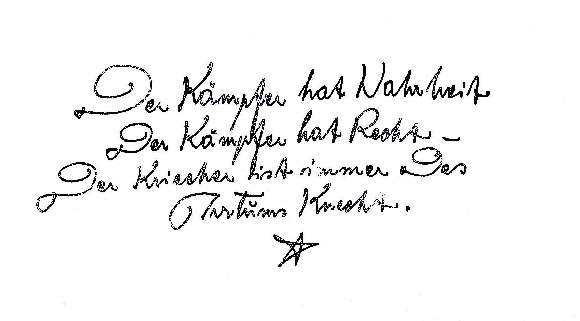 Der Kämpfer hat Wahrheit
Der Kämpfer hat Recht –
Der Kriecher ist immer des
Irrtums Knecht.